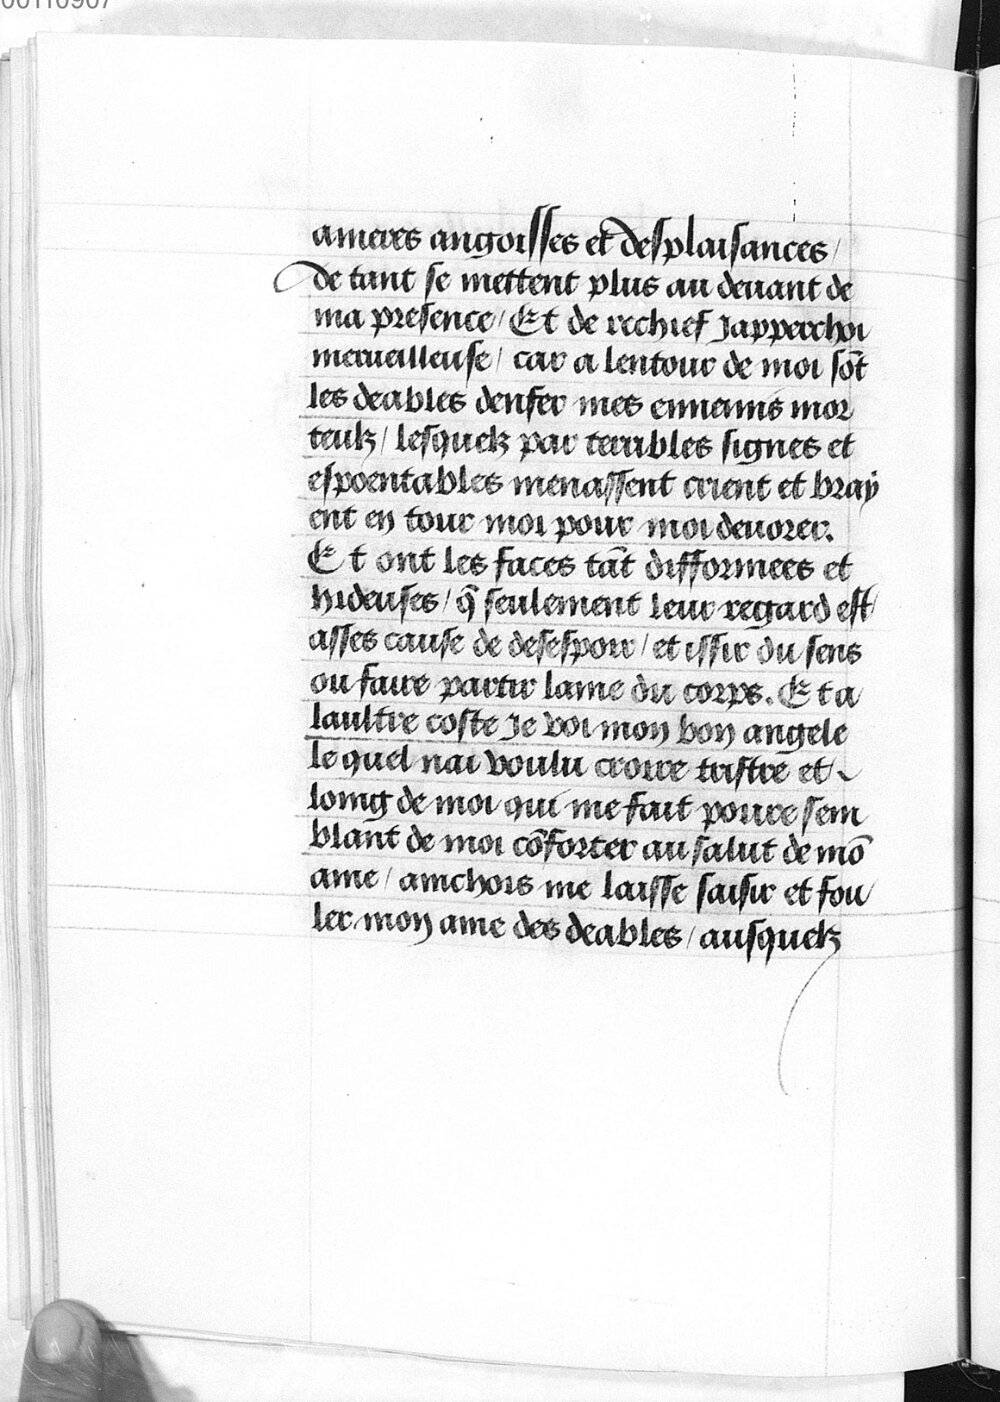 00110907
ameres angoisses et desplaisances /
de tant se mettent plus au deuant de
ma presence / Et de rechief japperchoi
merueilleuse / car a lentour de moi sōt
les deables denfer mes ennemis mor
teulz / lesquelz par terribles signes et
espoentables menassent crient et bray
ent en tour moi pour moi deuorer.
Et ont les faces tāt difformees et
hideuses / q̄ seulement leur regard est /
asses cause de desespoir / et issir du sens
ou faire partir lame du corps. Et a
laultre coste je voi mon bon angele
le quel nai voulu croire tristre et
loing de moi qui me fait poure sem
blant de moi cōforter au salut de mō
ame / ainchois me laisse saisir et fou /
ler mon ame des deables / ausquelz